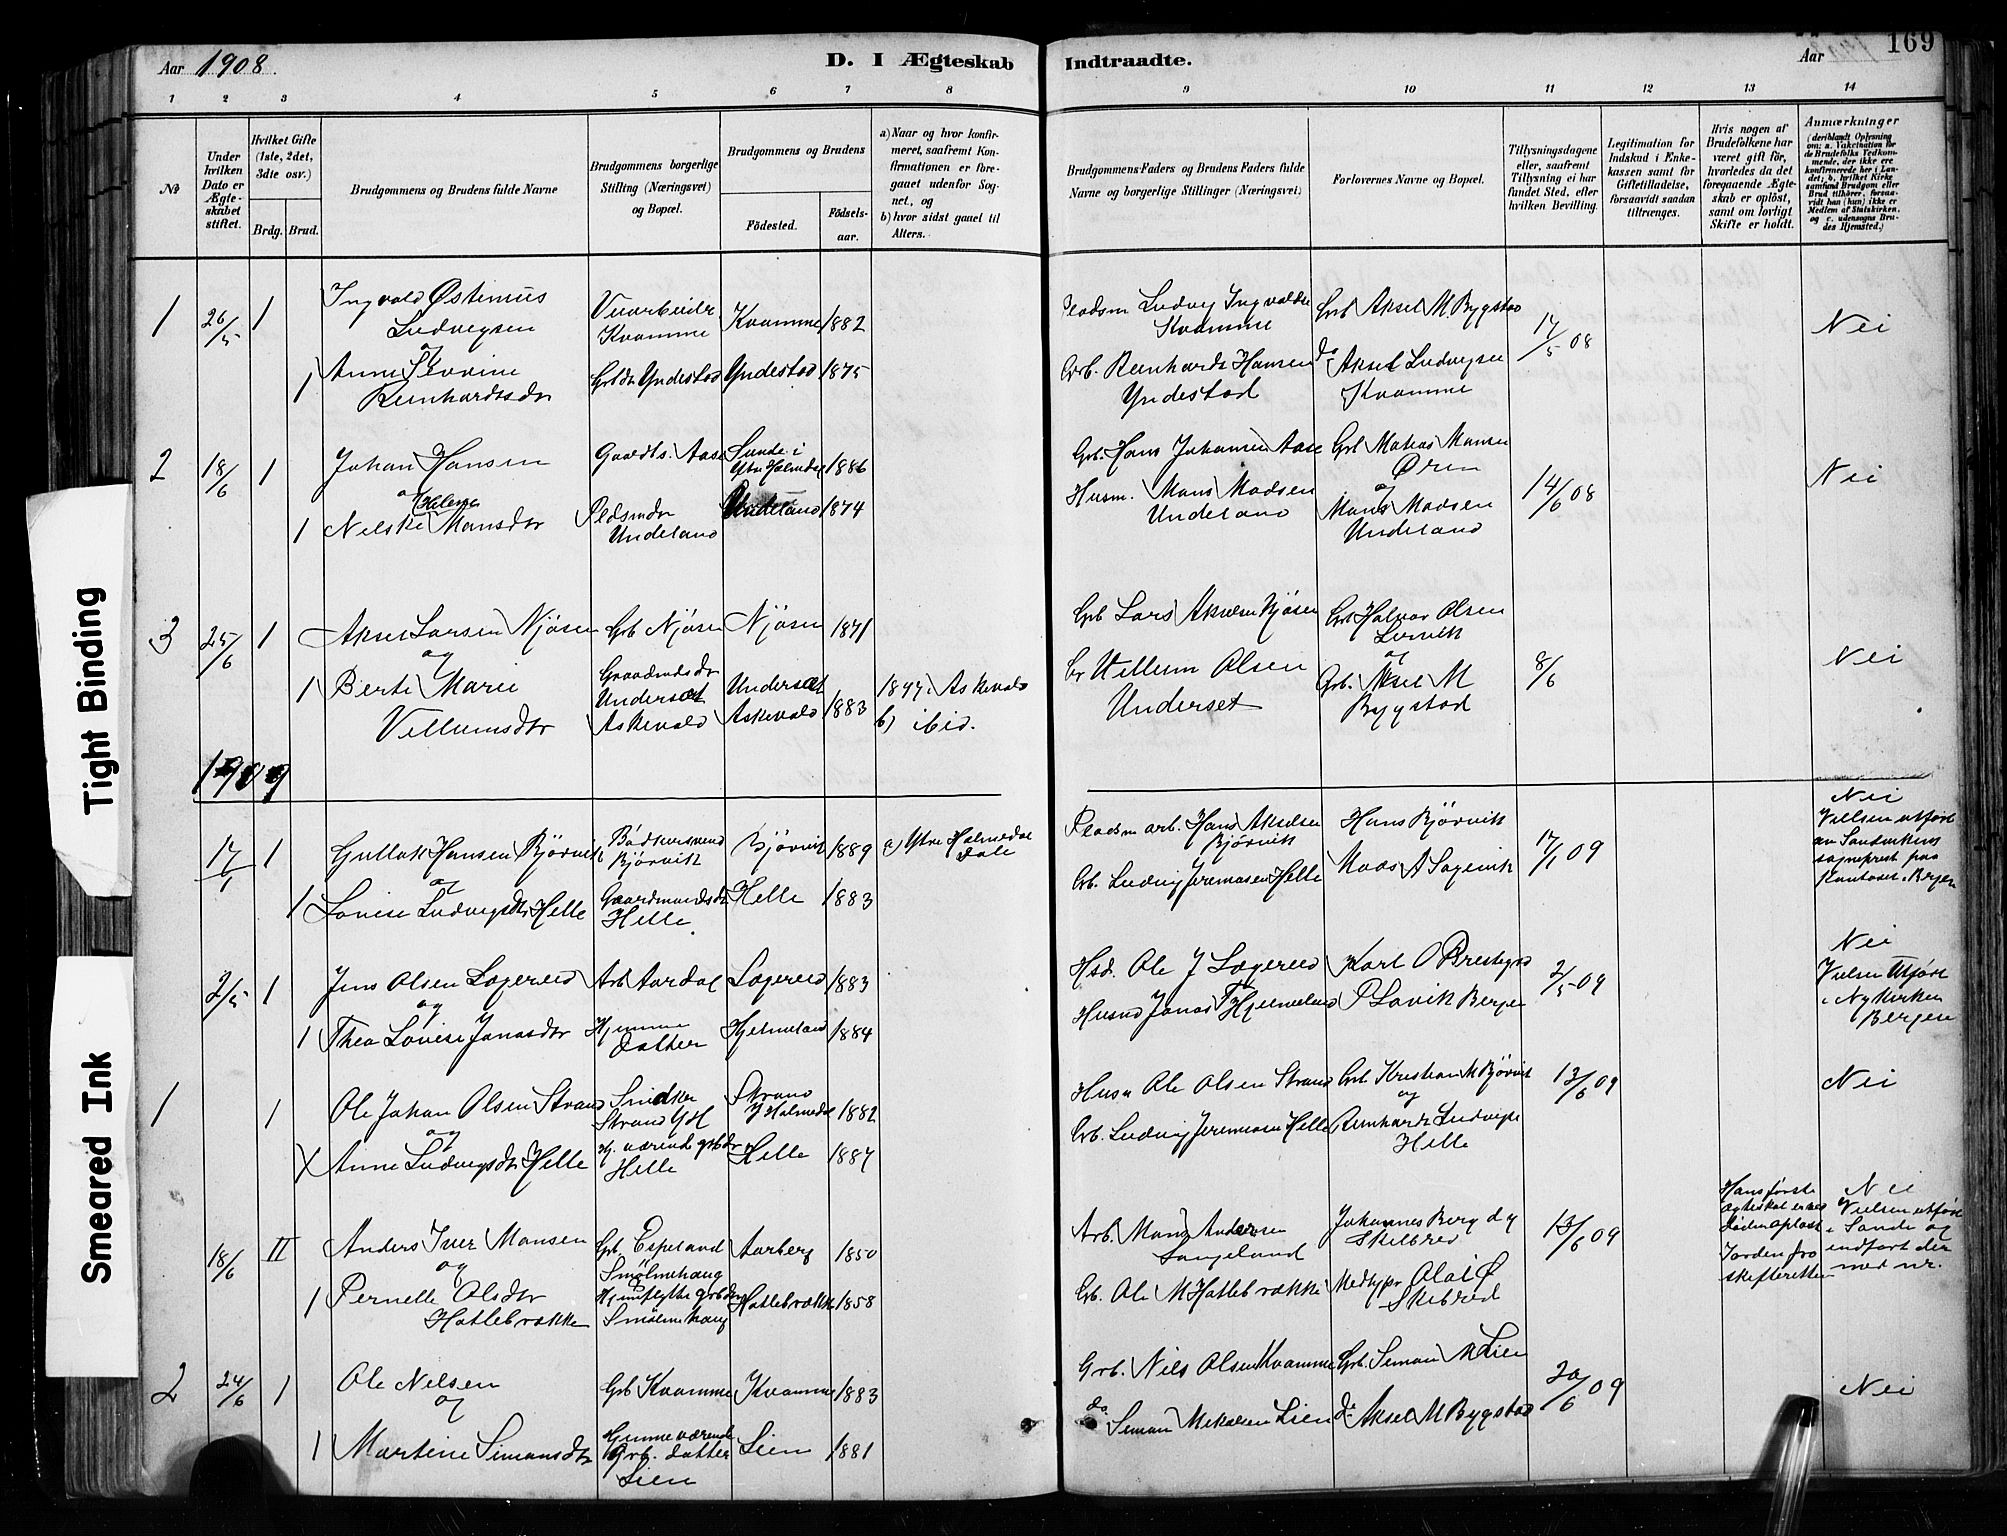 Aar 1908.
D. I Ægteskab Indtraadte.
Aar
169
1 2 3 4 5 6 7 8 9 10 11 12 13 14
No
Under hvilken Dato er Ægteskabet stiftet.
Hvilket Gifte (1ste, 2det, 3dte osv.)
Brdg. Brud.
Brudgommens og Brudens fulde Navne
Brudgommens borgerlige Stilling (Næringsvei) og Bopæl.
Brudgommens og Brudens
Födested.
Födselsaar.
a) Naar og hvor konfirmeret, saafremt Konfirmationen er foregaaet udenfor Sognet, og
b) hvor sidst gaaet til Alters.
Brudgommens Faders og Brudens Faders fulde Navne og borgerlige Stillinger (Næringsvei)
Forlovernes Navne og Bopæl.
Tillysningsdagene eller, saafremt Tillysning ei har fundet Sted, efter hvilken Bevilling.
Legitimation for Indskud i Enkekassen samt for Giftetilladelse, forsaavidt saadan tiltrænges.
Hvis nogen af Brudefolkene har været gift för, hvorledes da det foregaaende Ægteskab er oplöst, samt om lovligt Skifte er holdt.
Anmærkninger
(deriblandt Oplysning om: a. Vakcination for de Brudefolks Vedkommende, der ikke ere konfirmerede her i Landet; b. hvilket Kirkesamfund Brudgom eller Brud tilhörer, forsaavidt han (hun) ikke er Medlem af Statskirken, og c. udensogns Brudes Hjemsted.)
1 26/5 1 Ingvald Østenius Ludvigsen Kvamme Kvamme 1882
Ludvig Ingvaldsen Kvamme Grb Aksel M Bygstad 17/5 08 Nei
og
1 Anne Severine Bernhardsdtr Grbdtr Yndestad Yndestad 1875
Grb. Bernhard Hansen Yndestad do Aksel Ludvigsen Kvamme
2 18/6 1 Johan Hansen Gaardbr. Aase Sande i Ytre Holmedal 1886
Grb. Hans Johansen Aase Grb Matias Monsen Øren 14/6 08 Nei
og
Helene
1 Nilske Monsdtr Pladsmdtr Undeland Undeland 1874
Husm. Mons Madsen Undeland og Mons Madsen Undeland
3 25/6 1 Aksel Larsen Njøsen Grb Njøsen Njøsen 1871
Grb Lars Akselsen Njøsen Grb Halvor Olsen 8/6 Nei
og
1 Berte Marie Villumsdtr Gaardmdsdtr Underset Askevold Underset Askevold 1883 Askevold
b) ibid.
Gr Villum Olsen Underset og Grb. Aksel M Bygstad
1909
17/1 1 Gullak Hansen Bjørvik Bødkersvend Bjørvik Bjørvik 1889 a) Ytre Holmedal Dale
Pladsm arb. Hans Akselsen Bjørvik Hans Bjørvik 17/1 09 Nei
Vielsen utført av Sandvikens sogneprest paa kontoret i Bergen
og
1 Lovise Ludvigsdtr Helle Gaardmandsdtr Helle Helle 1883
Grb. Ludvig Jeremiasen Helle Mads A Sagevik
2/5 1 Jens Olsen Lægereid Arb Aardal Lægereid 1883
Ole J Lægereid Karl O 2/5 09 Nei
Vielsen utført i Nykirken Bergen
og
1 Thea Lovise Jonasdtr Hjemme datter Hjelmeland 1884
Husmd Jonas T Hjelmeland P Lavik Bergen
1 1 Ole Johan Olsen Strand Snedker Strand YH Strand Y Holmedal 1882
Husm Ole Olsen Strand Grb Kristian M Bjørvik 13/6 09 Nei
og
X Anne Ludvigsdtr Helle Hj. værende grbdtr Helle Helle 1887
Grb. Ludvig Jeremiasen Helle og Bernhard Ludvigs Helle
18/6 II Anders Iver Monsen Grb. Espeland Aarberg 1850
Arb. Mons Andersen Langeland Johannes Berg Skilbred 13/6 09
Hans første egteskap er ved døden opløst Jorden fra skifteretten
Nei
Vielsen utført i Sande og indført der med nr.
og
1 Pernelle Olsdtr Hatlebrække Smølmehaug Hjemflytte grbdtr Smølmehaug Hatlebrække 1858
Grb. Ole M Hatlebrække Olai Ø Skilbred
2 24/6 1 Ole Nilsen Grb Kvamme Kvamme 1883
Grb. Nils Olsen Kvamme Grb. Simon M Lien 20/6 09 Nei
og
1 Martine Simonsdtr Hjemmeværende Grb. datter Lien Lien 1881
do Simon Mikalsen Lien do Aksel M Bygstad
Tight Binding
Smeared Ink